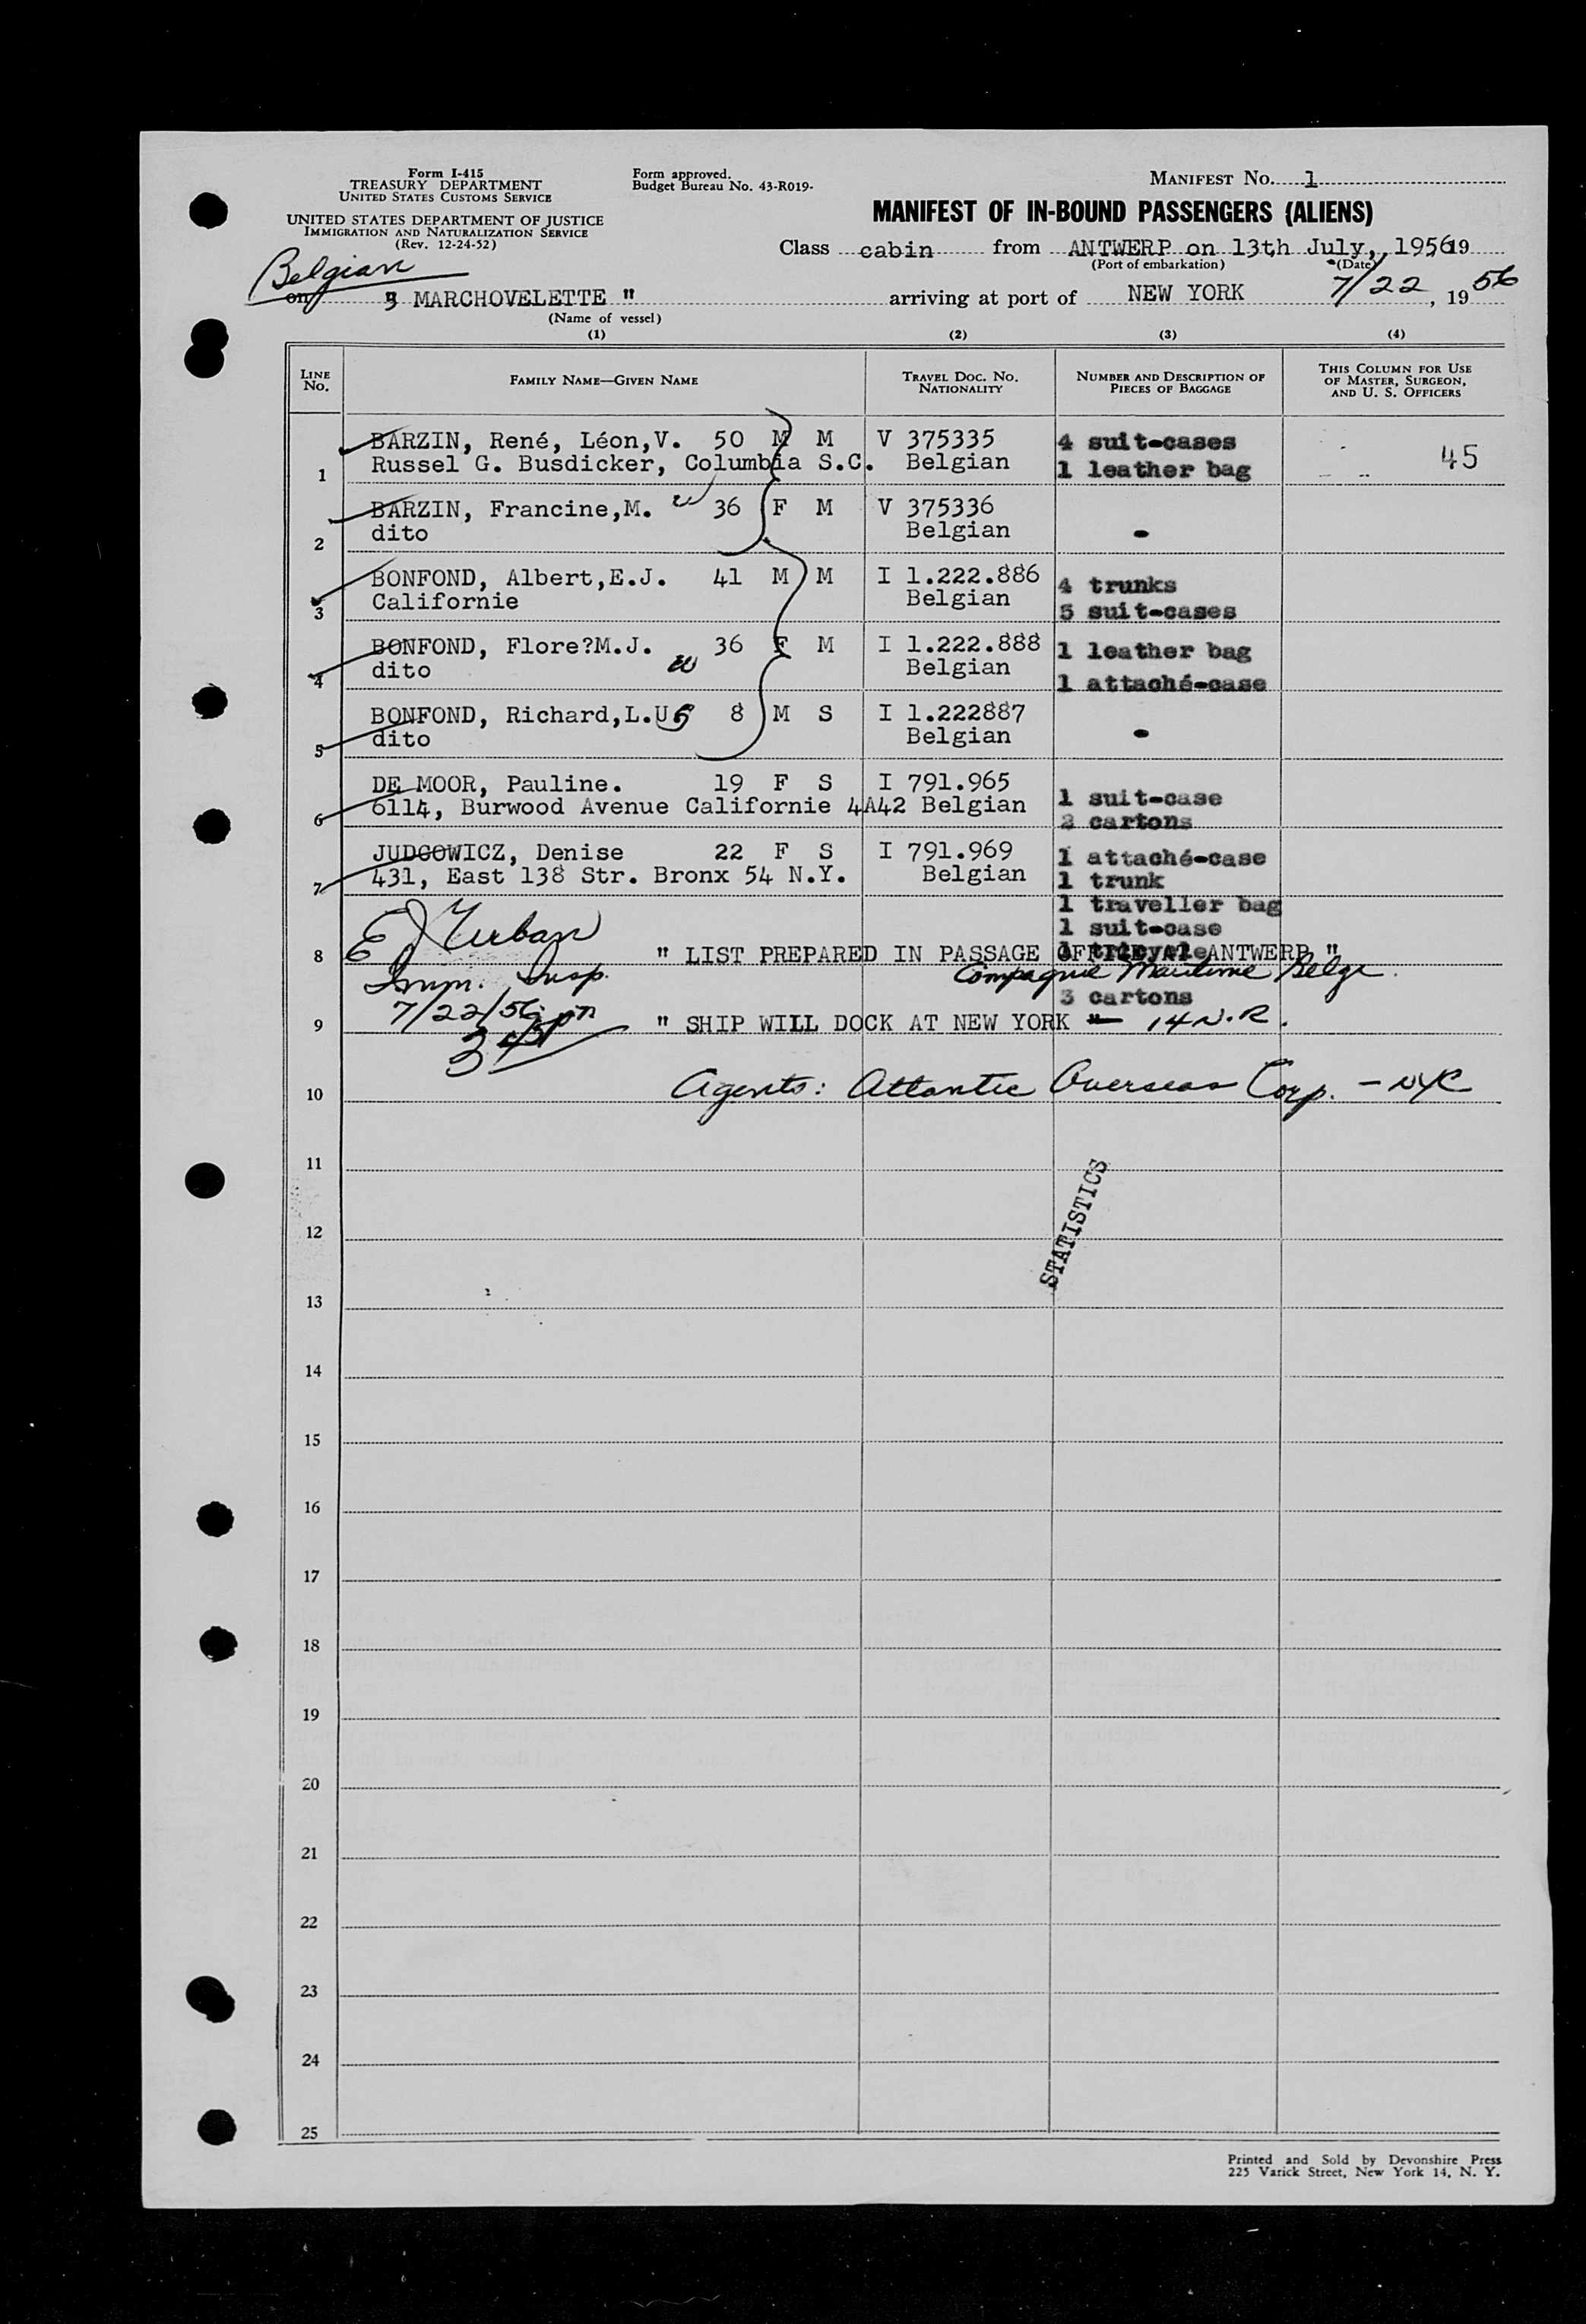 Form I-415
TREASURY DEPARTMENT
UNITED STATES CUSTOMS SERVICE
UNITED STATES DEPARTMENT OF JUSTICE
IMMIGRATION AND NATURALIZATION SERVICE
(Rev. 12-24-52)
Form approved.
Budget Bureau No. 43-R019-
MANIFEST No. 1
MANIFEST OF IN-BOUND PASSENGERS (ALIENS)
Class cabin from ANTWERP on 13th July, 1956 19
(Port of embarkation) (Date)
Belgian
on " MARCHOVELETTE " arriving at port of NEW YORK 7/22, 1956
(Name of vessel)
(1) (2) (3) (4)
LINE No. FAMILY NAME—GIVEN NAME TRAVEL DOC. No. NATIONALITY NUMBER AND DESCRIPTION OF PIECES OF BAGGAGE THIS COLUMN FOR USE OF MASTER, SURGEON, AND U. S. OFFICERS
BARZIN, René, Léon,V. 50 M M V 375335 4 suit-cases 45
1 Russel G. Busdicker, Columbia S.C. Belgian 1 leather bag
BARZIN, Francine,M. w 36 F M V 375336
2 dito Belgian -
BONFOND, Albert,E.J. 41 M M I 1.222.886 4 trunks
3 Californie Belgian 5 suit-cases
BONFOND, Flore?M.J. w 36 F M I 1.222.888 1 leather bag
4 dito Belgian 1 attaché-case
BONFOND, Richard,L.U 8 M S I 1.222887
5 dito Belgian -
DE MOOR, Pauline. 19 F S I 791.965 1 suit-case
6 6114, Burwood Avenue Californie 4A42 Belgian 2 cartons
JUDCOWICZ, Denise 22 F S I 791.969 1 attaché-case
7 431, East 138 Str. Bronx 54 N.Y. Belgian 1 trunk
1 traveller bag
1 suit-case
8 " LIST PREPARED IN PASSAGE OFFICE AT ANTWERP "
Imm. Insp. Compagnie Maritime Belge.
7/22/56 3 cartons
9 " SHIP WILL DOCK AT NEW YORK " 14 N.R.
10 Agents: Atlantic Overseas Corp. - NYC
11
STATISTICS
12
13
14
15
16
17
18
19
20
21
22
23
24
25
Printed and Sold by Devonshire Press
225 Varick Street, New York 14, N. Y.